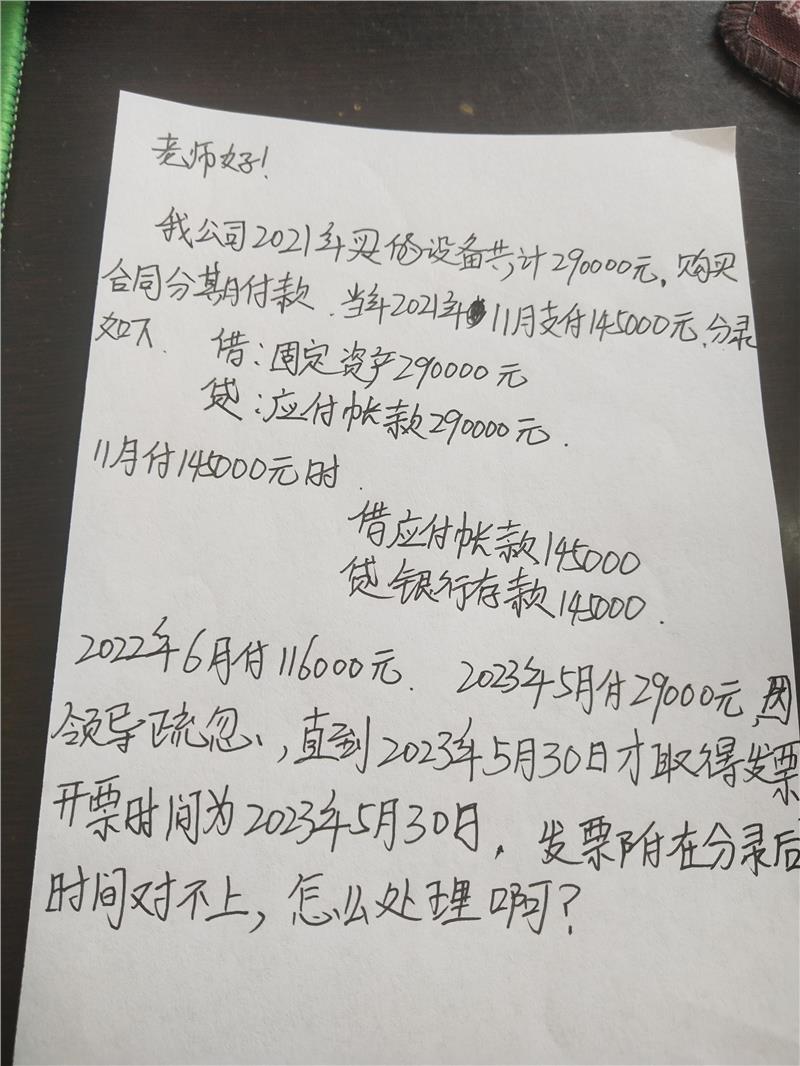 老师好!
我公司2021年买的设备共计290000元,购买
合同分期付款.当年2021年11月支付145000元,分录
如下 借:固定资产290000元
贷:应付帐款290000元.
11月付145000元时.
借应付帐款145000
贷银行存款145000.
2022年6月付116000元. 2023年5月付29000元,因
领导疏忽,直到2023年5月30日才取得发票
开票时间为2023年5月30日,发票附在分录后
时间对不上,怎么处理啊?